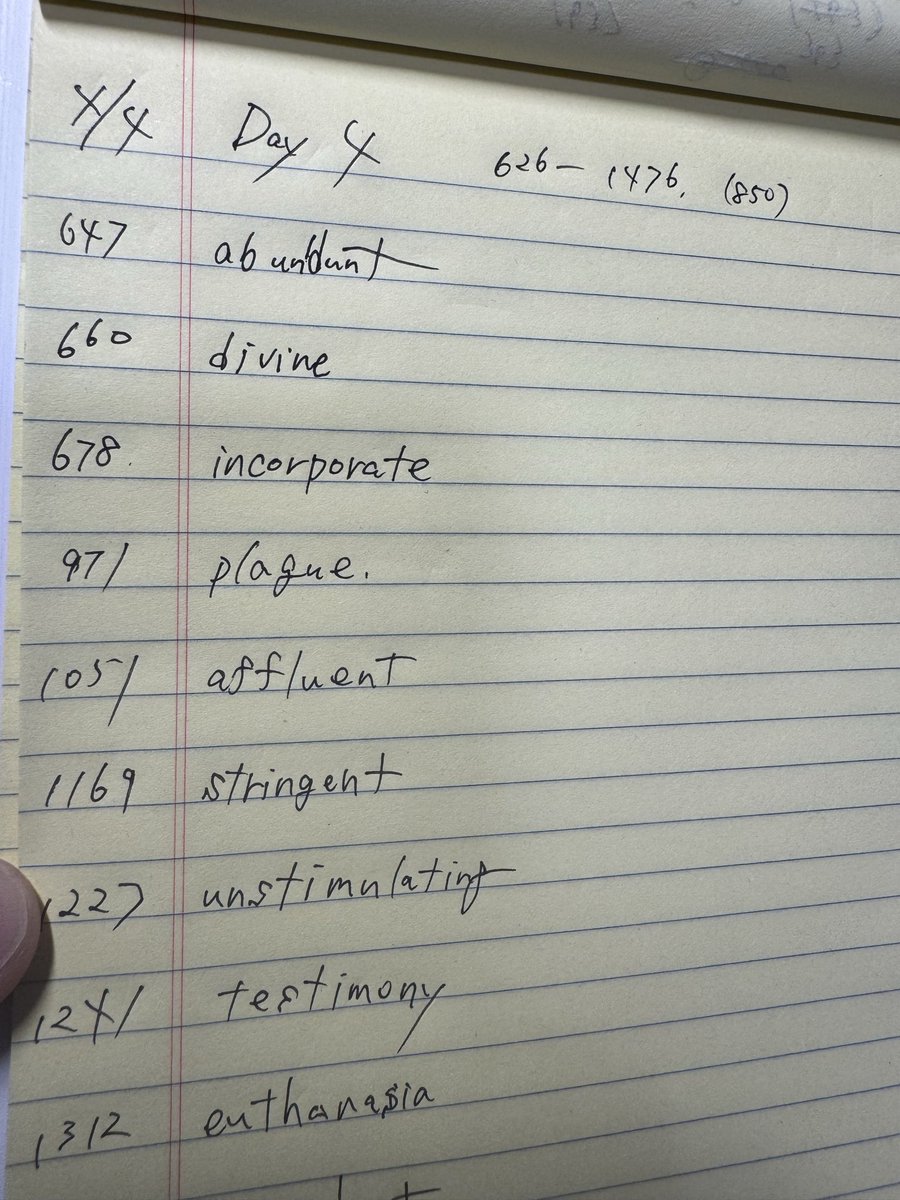 4/4 Day 4 626- 1476. (850)
647 abundant
660 divine
678. incorporate
971 plague.
1051 affluent
1169 stringent
1227 unstimulating
1241 testimony
1312 euthanasia